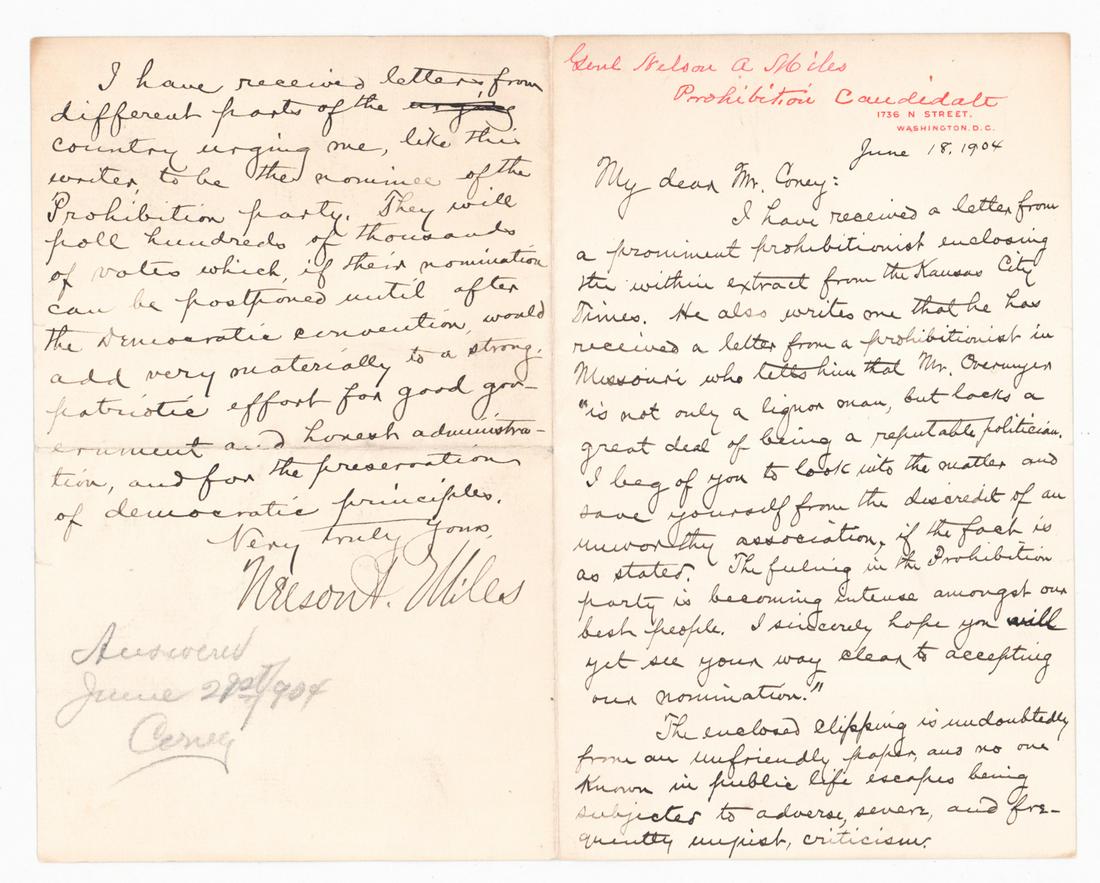 Genl Nelson A Miles
Prohibition Candidate
1736 N STREET.
WASHINGTON, D.C.
June 18, 1904
My dear Mr. Coney:
I have received a letter from
a prominent prohibitionist enclosing
the within extract from the Kansas City
Times. He also writes me that he has
received a letter from a prohibitionist in
Missouri who tells him that Mr. Overmyer
"is not only a liquor man, but lacks a
great deal of being a reputable politician.
I beg of you to look into the matter and
save yourself from the discredit of an
unworthy association, if the fact is
as stated. The feeling in the Prohibition
party is becoming intense amongst our
best people. I sincerely hope you will
yet see your way clear to accepting
our nomination."
The enclosed clipping is undoubtedly
from an unfriendly paper, and no one
known in public life escapes being
subjected to adverse, severe, and fre-
quently unjust, criticism.
I have received letters, from
different parts of the urging
country urging me, like this
writer, to be the nominee of the
Prohibition party. They will
poll hundreds of thousands
of votes which, if their nomination
can be postponed until after
the Democratic convention, would
add very materially to a strong
patriotic effort for good gov-
ernment and honest administra-
tion, and for the preservation
of democratic principles.
Very truly yours,
Nelson A. Miles
Answered
June 21st/904
Coney